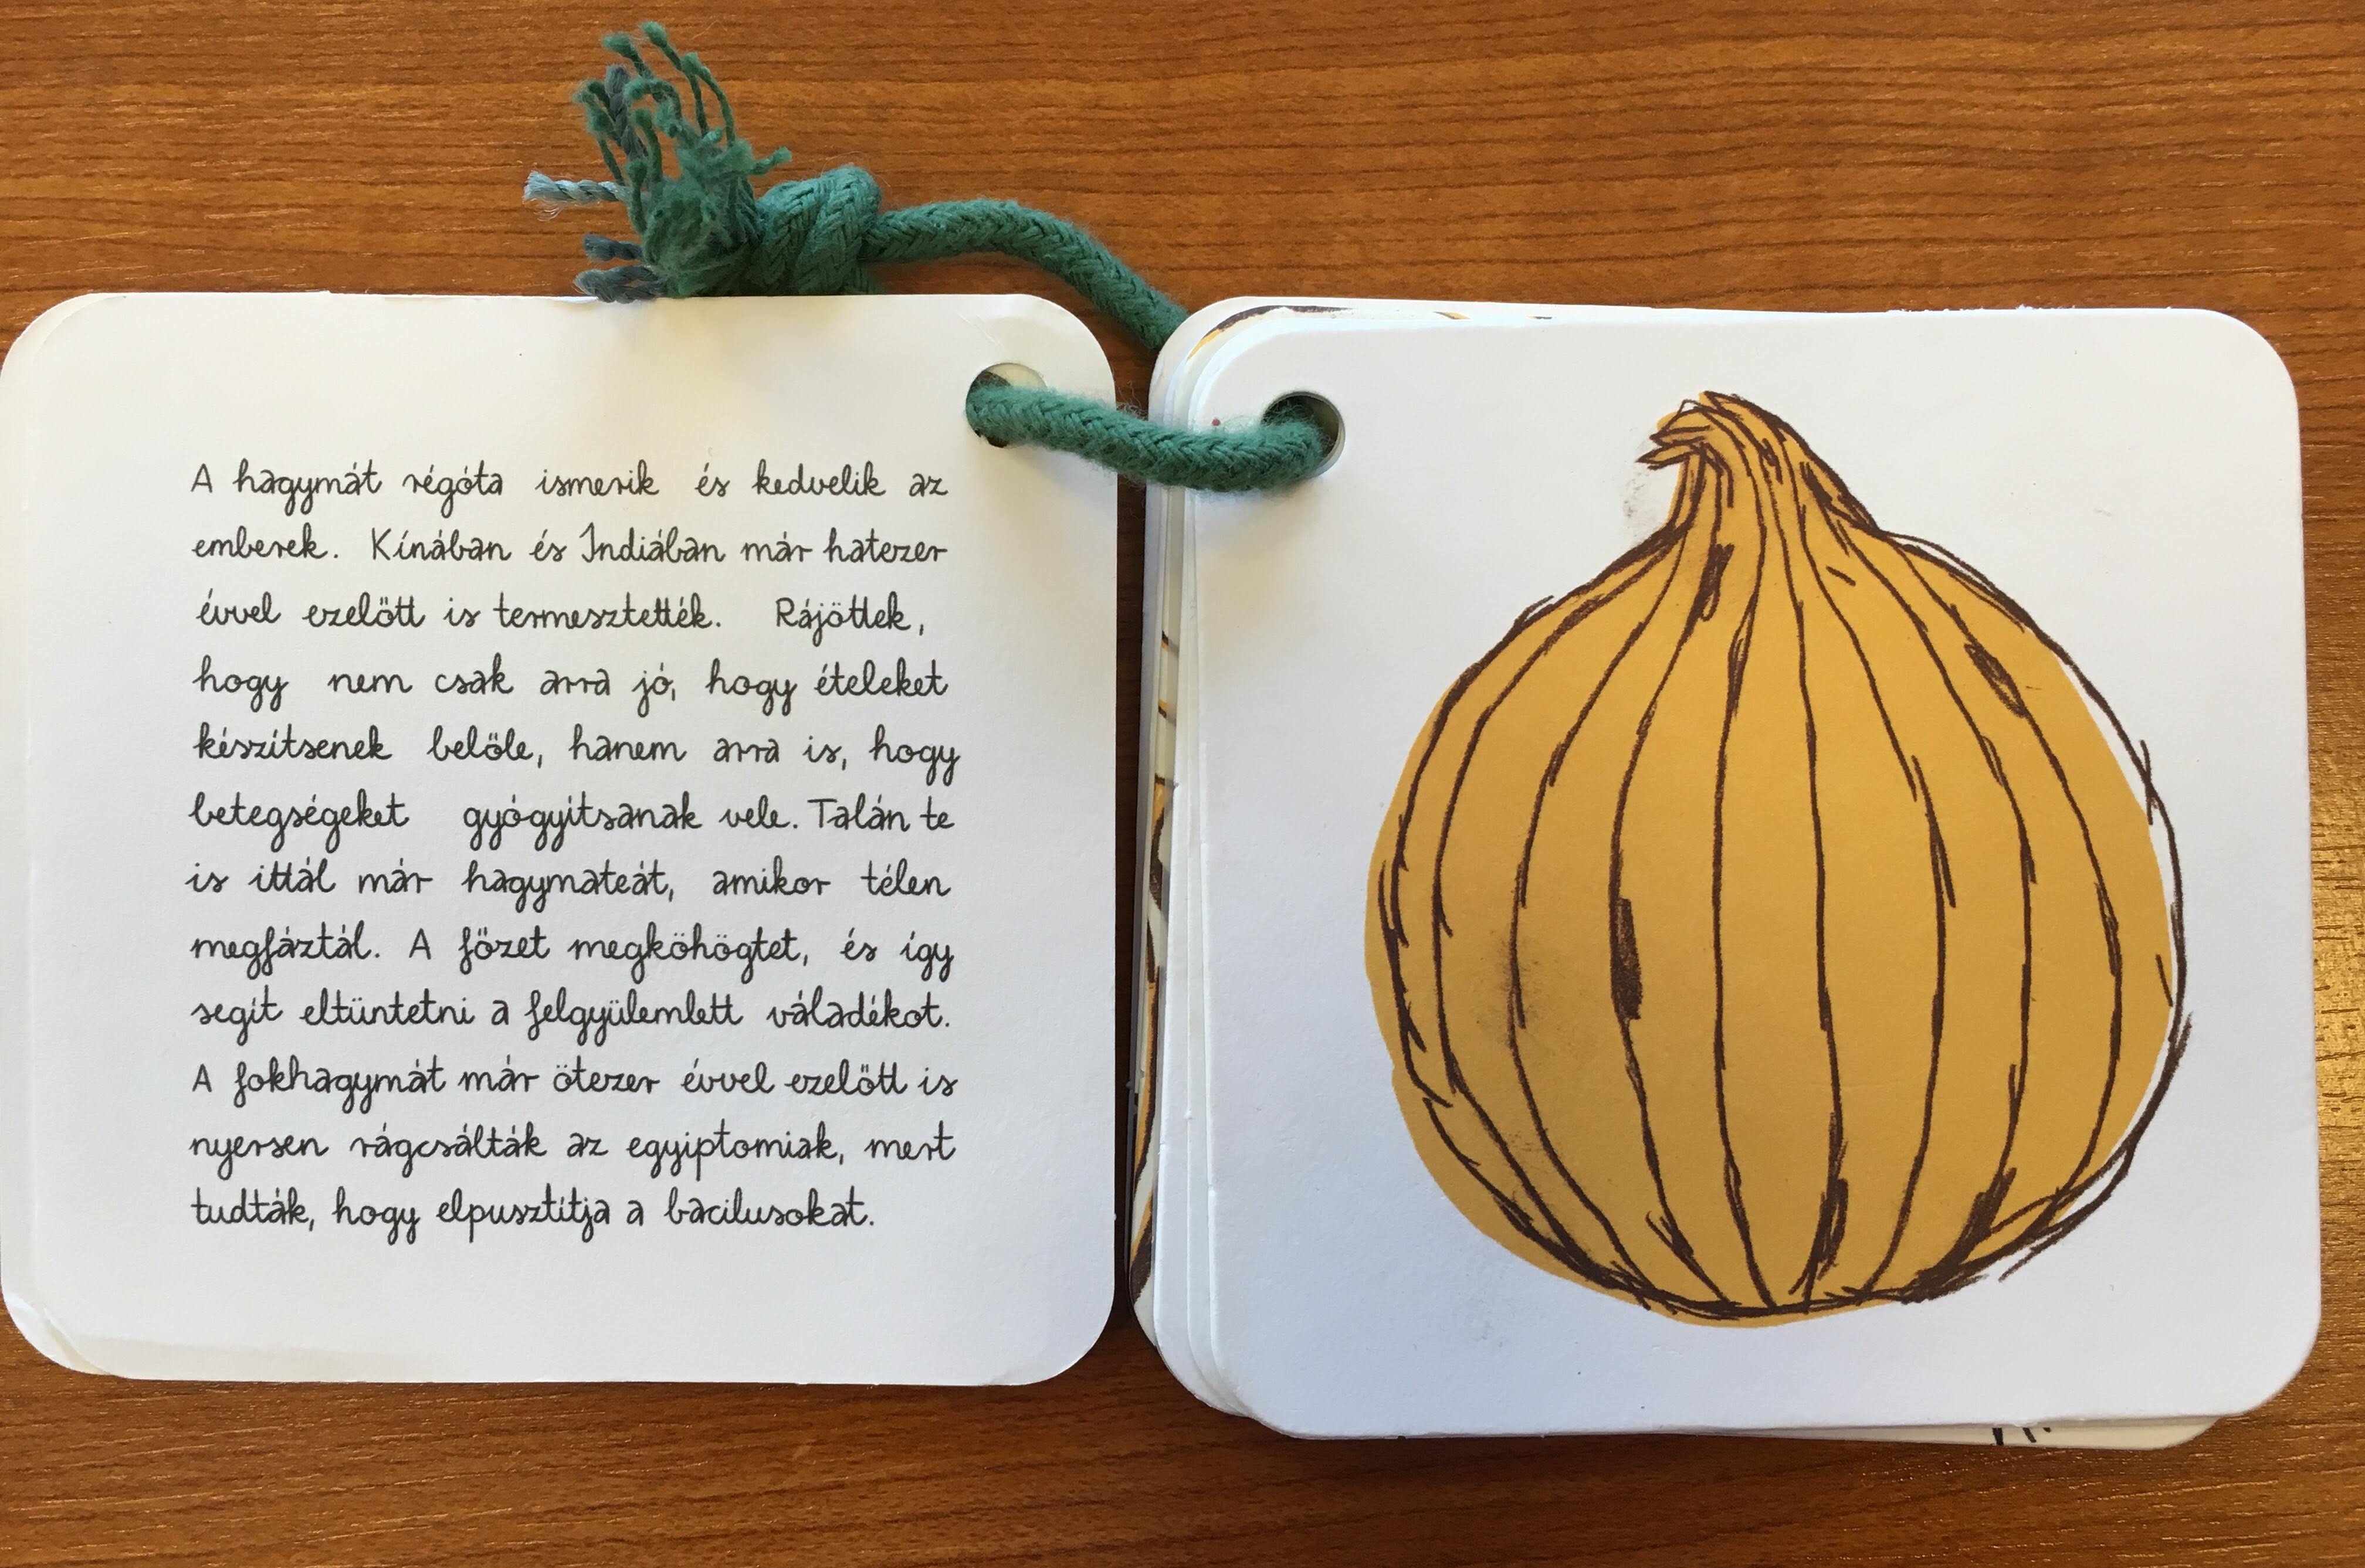 A hagymát régóta ismerik és kedvelik az
emberek. Kínában és Indiában már hatezer
évvel ezelőtt is termesztették. Rájöttek,
hogy nem csak arra jó, hogy ételeket
készítsenek belőle, hanem arra is, hogy
betegségeket gyógyítsanak vele. Talán te
is ittál már hagymateát, amikor télen
megfáztál. A főzet megköhögtet, és így
segít eltüntetni a felgyülemlett váladékot.
A fokhagymát már ötezer évvel ezelőtt is
nyersen rágcsálták az egyiptomiak, mert
tudták, hogy elpusztítja a bacilusokat.